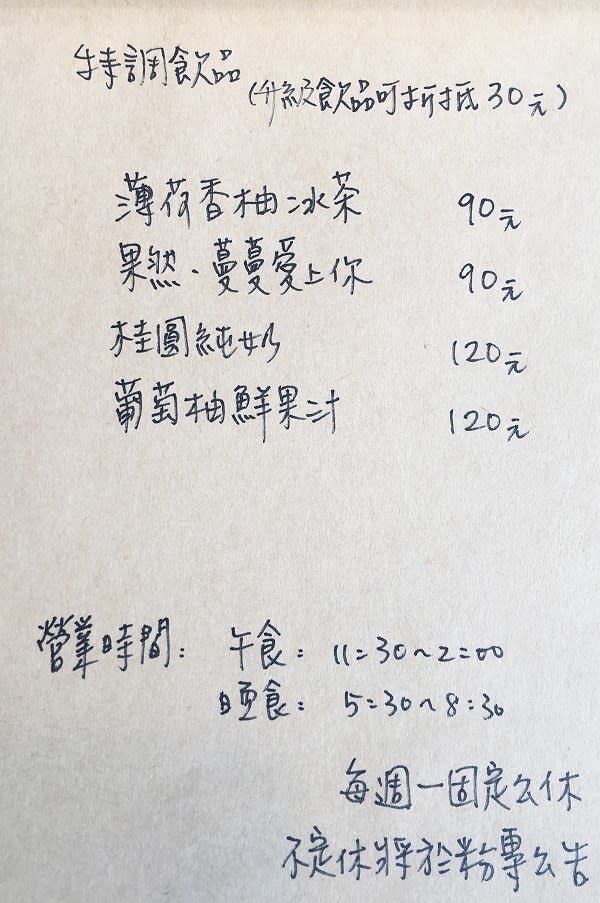 特調飲品
(升級飲品可折抵30元)
薄荷香柚冰茶 90元
果然.蔓蔓愛上你 90元
桂圓純奶 120元
葡萄柚鮮果汁 120元
營業時間: 午食: 11:30~2:00
晚食: 5:30~8:30
每週一固定公休
不定休將於粉專公告